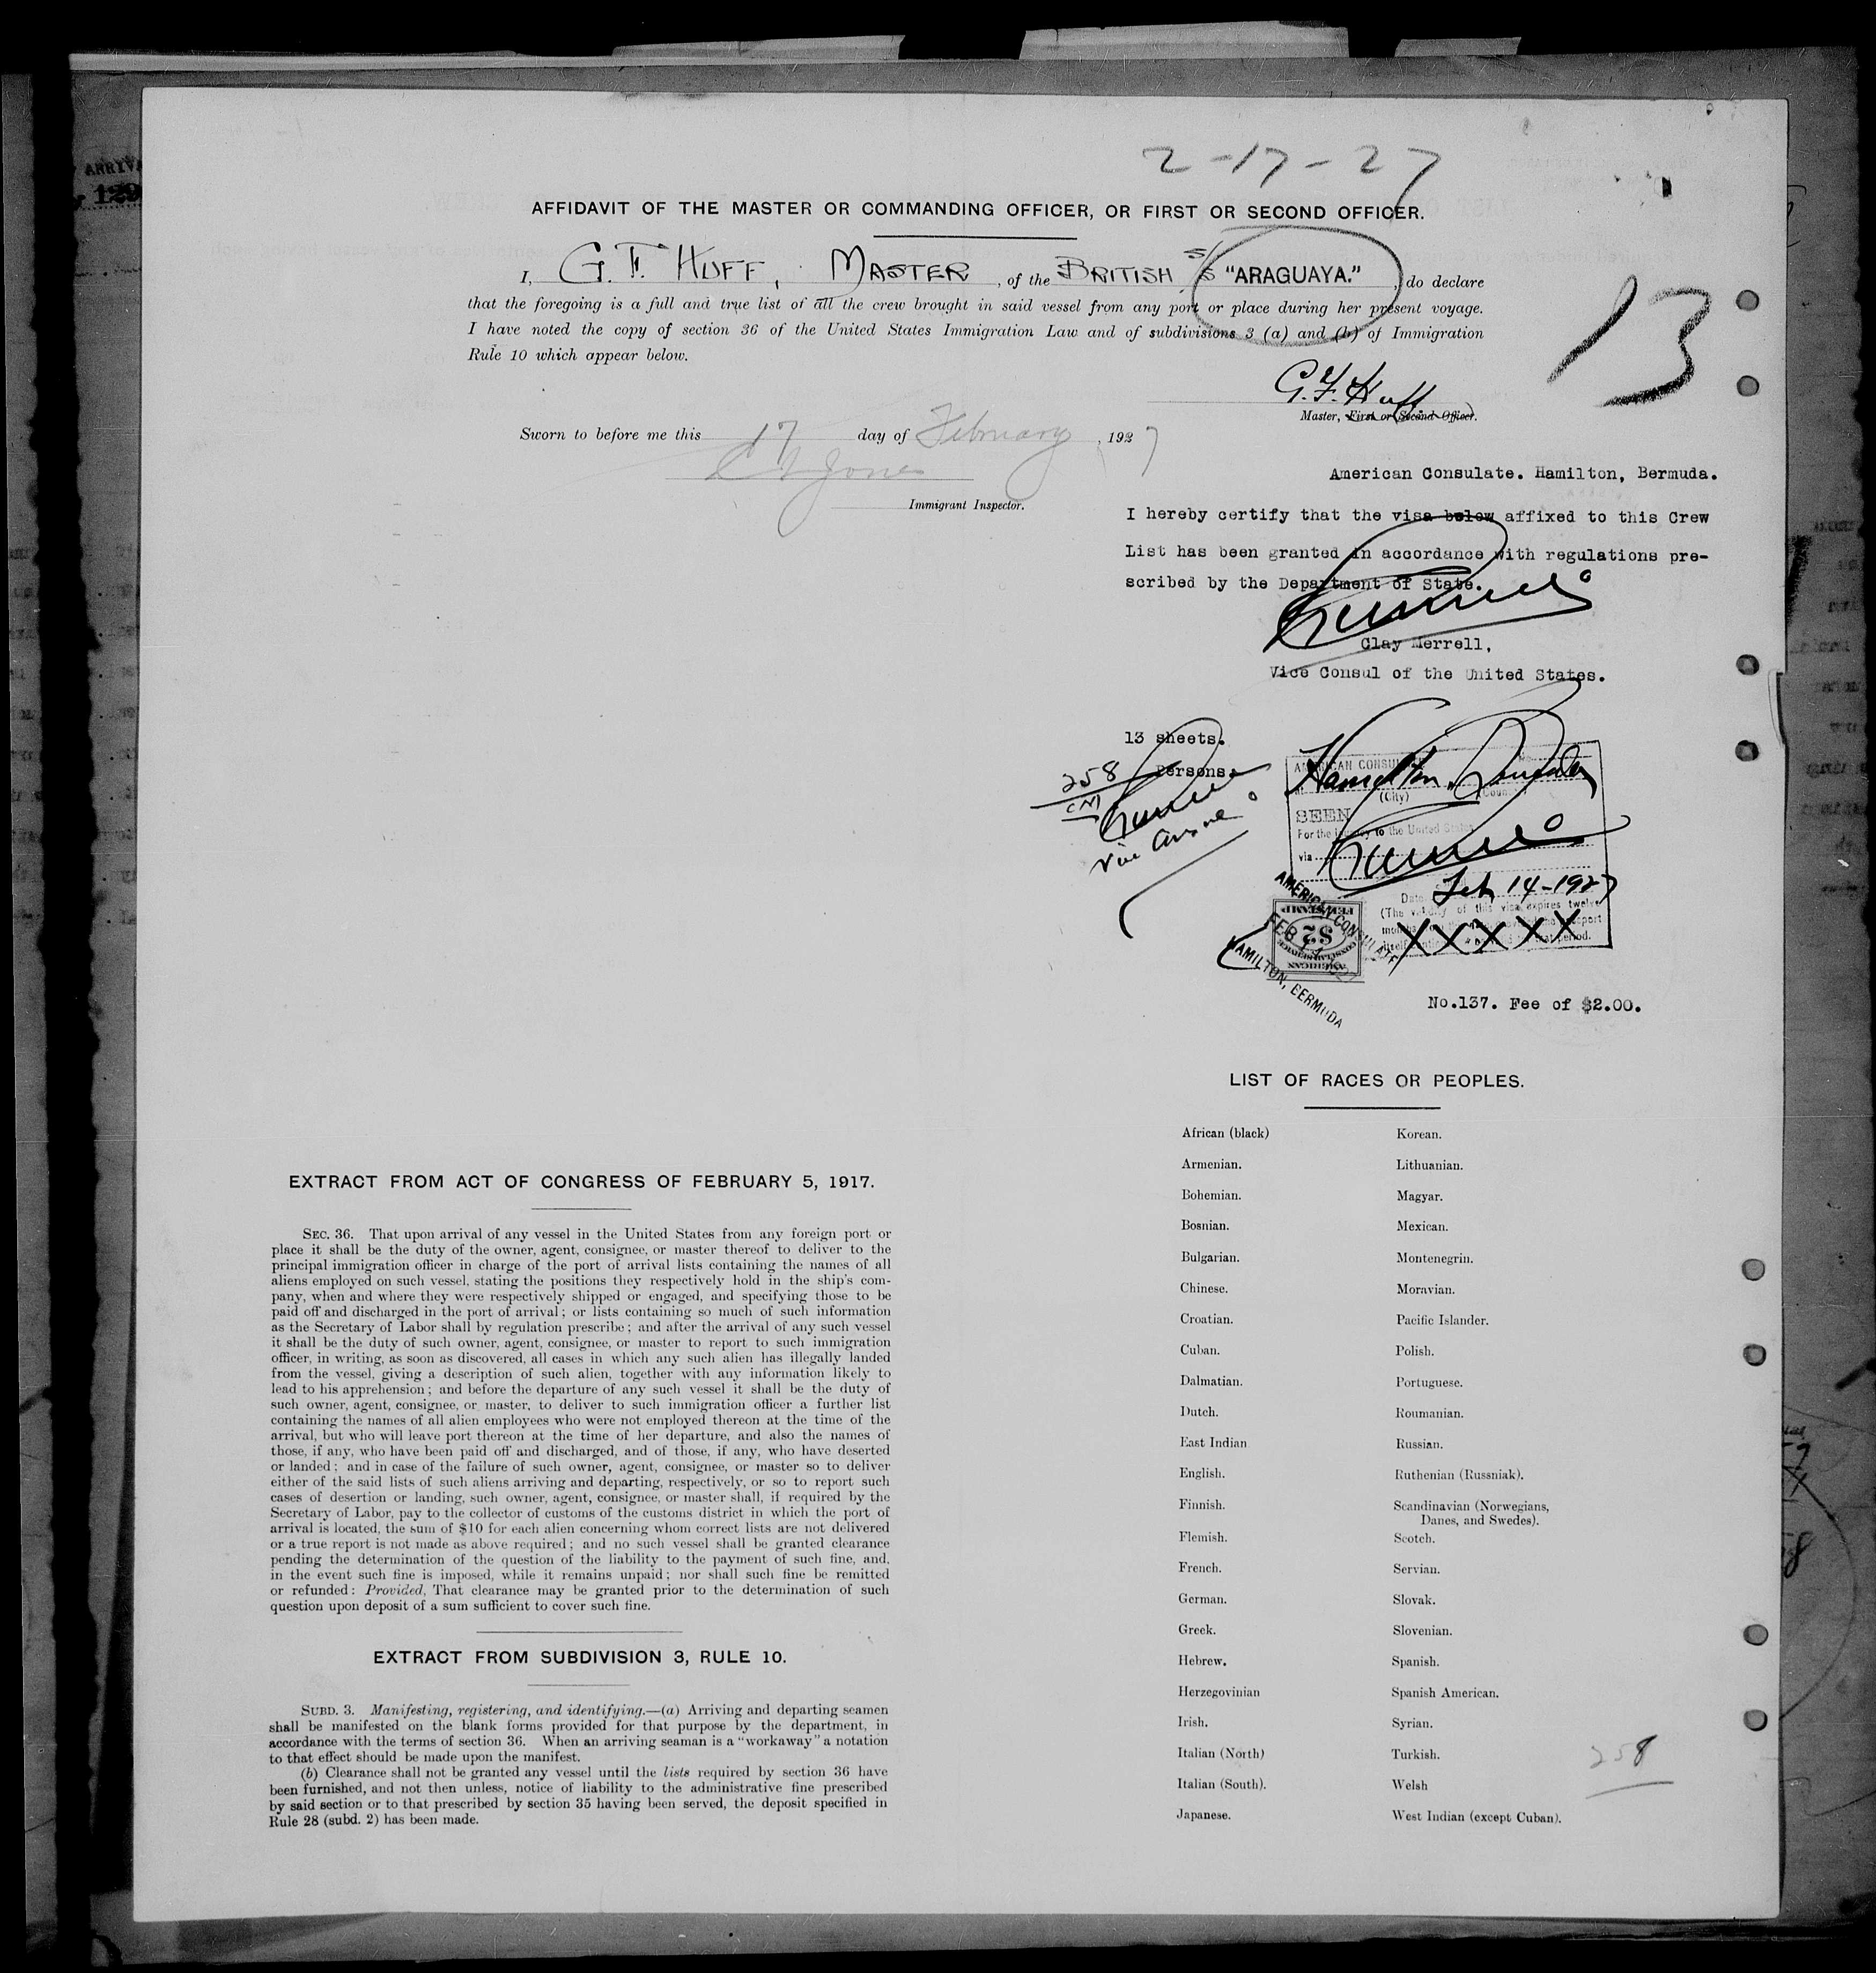 2-17-27
AFFIDAVIT OF THE MASTER OR COMMANDING OFFICER, OR FIRST OR SECOND OFFICER.
I, G. F. HUFF, MASTER, of the BRITISH S/S "ARAGUAYA.", do declare
that the foregoing is a full and true list of all the crew brought in said vessel from any port or place during her present voyage.
I have noted the copy of section 36 of the United States Immigration Law and of subdivisions 3 (a) and (b) of Immigration
Rule 10 which appear below.
13
G. F. Huff
Master, First or Second Officer.
Sworn to before me this 17 day of February, 1927
Jones
Immigrant Inspector.
American Consulate. Hamilton, Bermuda.
I hereby certify that the visa below affixed to this Crew
List has been granted in accordance with regulations pre-
scribed by the Department of State.
Clay Merrell,
Vice Consul of the United States.
13 sheets.
258 Persons.
CM
Vice Consul
AMERICAN CONSULATE
Hamilton, Bermuda
(City) (Country)
SEEN
For the journey to the United States
via
Date Feb 14-1927
(The validity of this visa expires twelve
XXXXX
AMERICAN CONSULATE
FEB 14 1927
HAMILTON, BERMUDA
FEE STAMP
$2
CONSULAR SERVICE
AMERICAN
No.137. Fee of $2.00.
LIST OF RACES OR PEOPLES.
African (black)
Armenian.
Bohemian.
Bosnian.
Bulgarian.
Chinese.
Croatian.
Cuban.
Dalmatian.
Dutch.
East Indian
English.
Finnish.
Flemish.
French.
German.
Greek.
Hebrew.
Herzegovinian
Irish.
Italian (North)
Italian (South).
Japanese.
Korean.
Lithuanian.
Magyar.
Mexican.
Montenegrin.
Moravian.
Pacific Islander.
Polish.
Portuguese.
Roumanian.
Russian.
Ruthenian (Russniak).
Scandinavian (Norwegians,
Danes, and Swedes).
Scotch.
Servian.
Slovak.
Slovenian.
Spanish.
Spanish American.
Syrian.
Turkish.
Welsh
West Indian (except Cuban).
258
EXTRACT FROM ACT OF CONGRESS OF FEBRUARY 5, 1917.
SEC. 36. That upon arrival of any vessel in the United States from any foreign port or
place it shall be the duty of the owner, agent, consignee, or master thereof to deliver to the
principal immigration officer in charge of the port of arrival lists containing the names of all
aliens employed on such vessel, stating the positions they respectively hold in the ship's com-
pany, when and where they were respectively shipped or engaged, and specifying those to be
paid off and discharged in the port of arrival; or lists containing so much of such information
as the Secretary of Labor shall by regulation prescribe; and after the arrival of any such vessel
it shall be the duty of such owner, agent, consignee, or master to report to such immigration
officer, in writing, as soon as discovered, all cases in which any such alien has illegally landed
from the vessel, giving a description of such alien, together with any information likely to
lead to his apprehension; and before the departure of any such vessel it shall be the duty of
such owner, agent, consignee, or master, to deliver to such immigration officer a further list
containing the names of all alien employees who were not employed thereon at the time of the
arrival, but who will leave port thereon at the time of her departure, and also the names of
those, if any, who have been paid off and discharged, and of those, if any, who have deserted
or landed; and in case of the failure of such owner, agent, consignee, or master so to deliver
either of the said lists of such aliens arriving and departing, respectively, or so to report such
cases of desertion or landing, such owner, agent, consignee, or master shall, if required by the
Secretary of Labor, pay to the collector of customs of the customs district in which the port of
arrival is located, the sum of $10 for each alien concerning whom correct lists are not delivered
or a true report is not made as above required; and no such vessel shall be granted clearance
pending the determination of the question of the liability to the payment of such fine, and,
in the event such fine is imposed, while it remains unpaid; nor shall such fine be remitted
or refunded: Provided, That clearance may be granted prior to the determination of such
question upon deposit of a sum sufficient to cover such fine.
EXTRACT FROM SUBDIVISION 3, RULE 10.
SUBD. 3. Manifesting, registering, and identifying.—(a) Arriving and departing seamen
shall be manifested on the blank forms provided for that purpose by the department, in
accordance with the terms of section 36. When an arriving seaman is a "workaway" a notation
to that effect should be made upon the manifest.
(b) Clearance shall not be granted any vessel until the lists required by section 36 have
been furnished, and not then unless, notice of liability to the administrative fine prescribed
by said section or to that prescribed by section 35 having been served, the deposit specified in
Rule 28 (subd. 2) has been made.